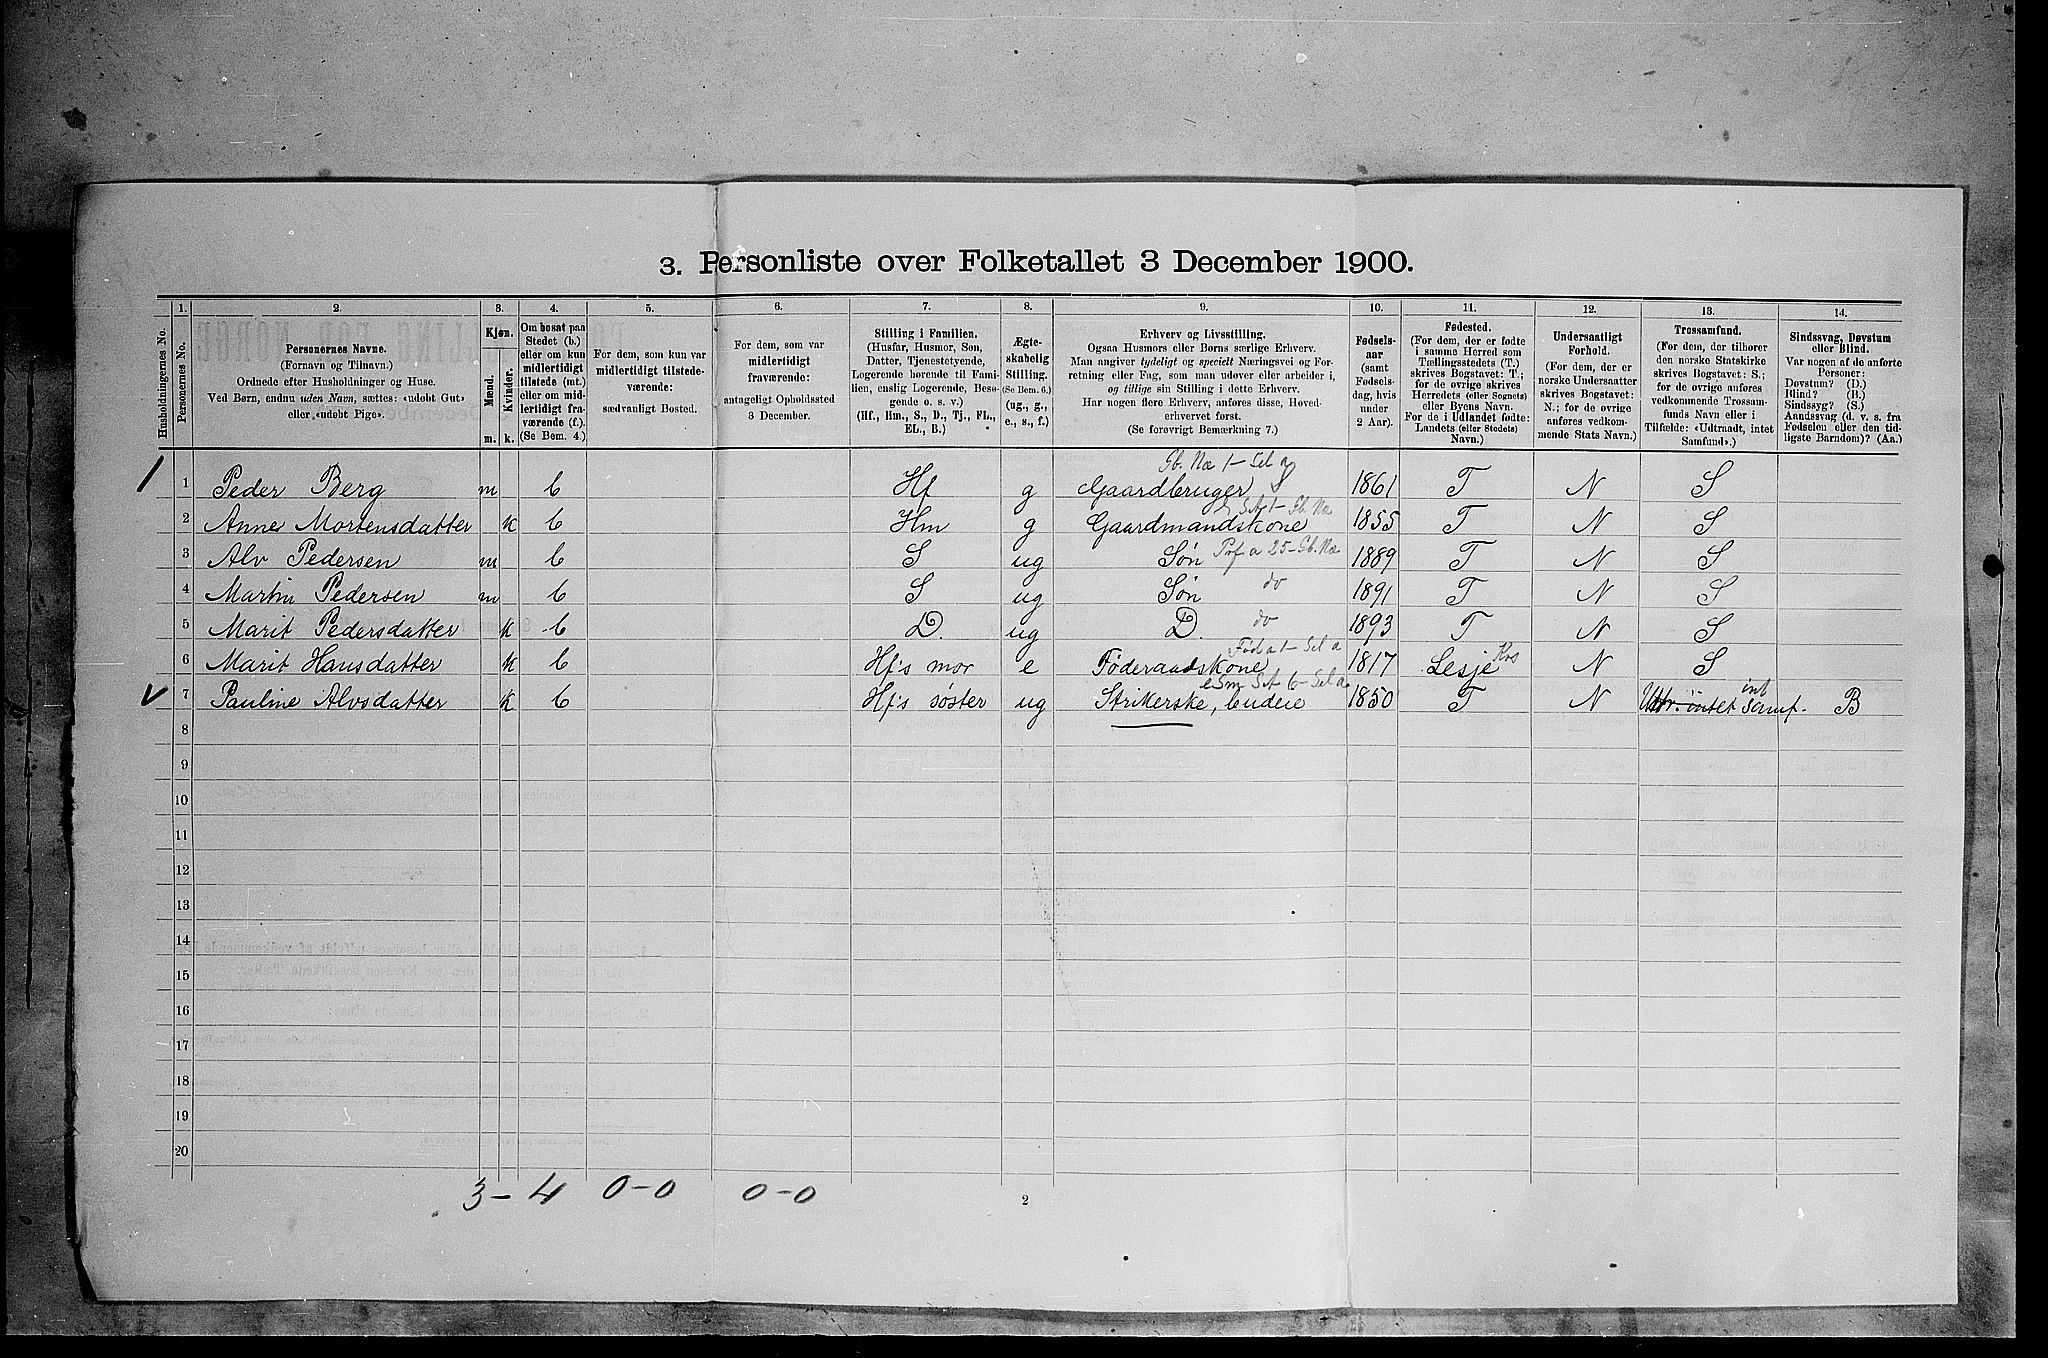 3. Personliste over Folketallet 3 December 1900.
1. 2. 3. 4. 5. 6. 7. 8. 9. 10. 11. 12. 13. 14.
Husholdningernes No.
Personernes No.
Personernes Navne.
(Fornavn og Tilnavn).
Ordnede efter Husholdninger og Huse.
Ved Børn, endnu uden Navn, sættes: «udøbt Gut»
eller «udøbt Pige».
Kjøn.
Mænd.
Kvinder.
m. k.
Om bosat paa
Stedet (b.)
eller om kun
midlertidigt
tilstede (mt.)
eller om mid-
lertidigt fra-
værende (f.).
(Se Bem. 4.)
For dem, som kun var
midlertidigt tilstede-
værende:
sædvanligt Bosted.
For dem, som var
midlertidigt
fraværende:
antageligt Opholdssted
3 December.
Stilling i Familien.
(Husfar, Husmor, Søn,
Datter, Tjenestetyende,
Logerende hørende til Fami-
lien, enslig Logerende, Besø-
gende o. s. v.)
(Hf., Hm., S., D., Tj., FL.,
EL., B.)
Ægte-
skabelig
Stilling.
(Se Bem. 6.)
(ug., g.,
e., s., f.)
Erhverv og Livsstilling.
Ogsaa Husmors eller Børns særlige Erhverv.
Man angiver tydeligt og specielt Næringsvei og For-
retning eller Fag, som man udøver eller arbeider i,
og tillige sin Stilling i dette Erhverv.
Har nogen flere Erhverv, anføres disse, Hoved-
erhvervet først.
(Se forøvrigt Bemærkning 7.)
Fødsels-
aar
(samt
Fødsels-
dag, hvis
under
2 Aar).
Fødested.
(For dem, der er fødte
i samme Herred som
Tællingsstedets (T.)
skrives Bogstavet: T.;
for de øvrige skrives
Herredets (eller Sognets)
eller Byens Navn.
For de i Udlandet fødte:
Landets (eller Stedets)
Navn.)
Undersaatligt
Forhold.
(For dem, der er
norske Undersaatter
skrives Bogstavet:
N.; for de øvrige
anføres vedkom-
mende Stats Navn.)
Trossamfund.
(For dem, der tilhører
den norske Statskirke
skrives Bogstavet: S.;
for de øvrige anføres
vedkommende Trossam-
funds Navn eller i
Tilfælde: «Udtraadt, intet
Samfund».)
Sindssvag, Døvstum
eller Blind.
Var nogen af de anførte
Personer:
Døvstum? (D.)
Blind? (B.)
Sindssyg? (S.)
Aandssvag (d. v. s. fra
Fødselen eller den tid-
ligste Barndom)? (Aa.)
Gb. Næ 1 – Sel a
1 Peder Berg m b Hf g Gaardbruger 1861 T N S
Gb. Næ
2 Anne Mortensdatter k b Hm g Gaardmandskone 1855 T N S
3 Alv Pedersen m b S ug Søn Prf a 25 – Gb. Næ 1889 T N S
4 Martin Pedersen m b S ug Søn do 1891 T N S
5 Marit Pedersdatter k b D. ug D. do 1893 T N S
Fød a 1 – Sel a
6 Marit Hansdatter k b Hf's mor e Føderaadskone 1817 Lesje Krs N S
Sm Set 6 – Sel a
7 Pauline Alvsdatter k b Hf's søster ug Strikerske, budeie 1850 T N Udtr. intet int samf. B
8
9
10
11
12
13
14
15
16
17
18
19
20
3 – 4 0 – 0 0 – 0
2